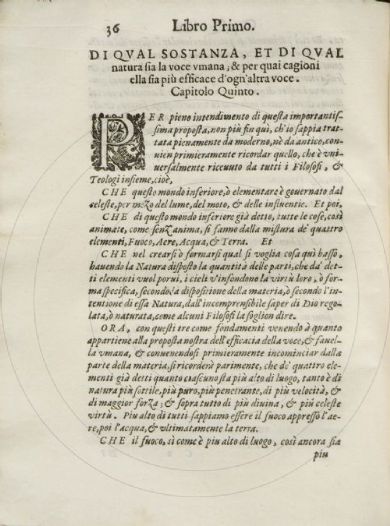 36 Libro Primo.
DI QVAL SOSTANZA, ET DI QVAL
natura sia la voce vmana; & per quai cagioni
ella sia più efficace d'ogn'altra voce.
Capitolo Quinto.
PER pieno intendimento di questa importantis-
sima proposta, non più fin quì, ch'io sappia trat-
tata pienamente da moderno, nè da antico, con-
uien primieramente ricordar quello, che è vni-
uersalmente riceuuto da tutti i Filosofi, &
Teologi insieme, cioè,
CHE questo mondo inferiore, ò elementare è gouernato dal
celeste, per mezo del lume, del moto, & delle influentie. Et poi,
CHE di questo mondo inferiore già detto, tutte le cose, così
animate, come senz'anima, si fanno dalla mistura de' quattro
elementi, Fuoco, Aere, Acqua, & Terra. Et
CHE nel crearsi ò formarsi qual si voglia cosa quà basso,
hauendo la Natura disposto la quantità delle parti, che da' det-
ti elementi vuol porui, i cieli v'infondono la virtù loro, ò for-
ma specifica, secondo la dispositione della materia, ò secondo l'in-
tentione di essa Natura, dall'incomprensibile saper di Dio rego-
lata, ò naturata, come alcuni Filosofi la soglion dire.
ORA, con questi tre come fondamenti venendo à quanto
appartiene alla proposta nostra dell'efficacia della voce, & fauel-
la vmana, & conuenendosi primieramente incominciar dalla
parte della materia, si ricorderà parimente, che de' quattro ele-
menti già detti quanto ciascuno sta più alto di luogo, tanto è di
natura più sottile, più puro, più penetrante, di più velocità, &
di maggior forza; & sopra tutto di più diuina, & più celeste
virtù. Piu alto di tutti sappiamo essere il fuoco appresso l'ae-
re, poi l'acqua, & vltimatamente la terra.
CHE il fuoco, sì come è piu alto di luogo, così ancora sia
piu